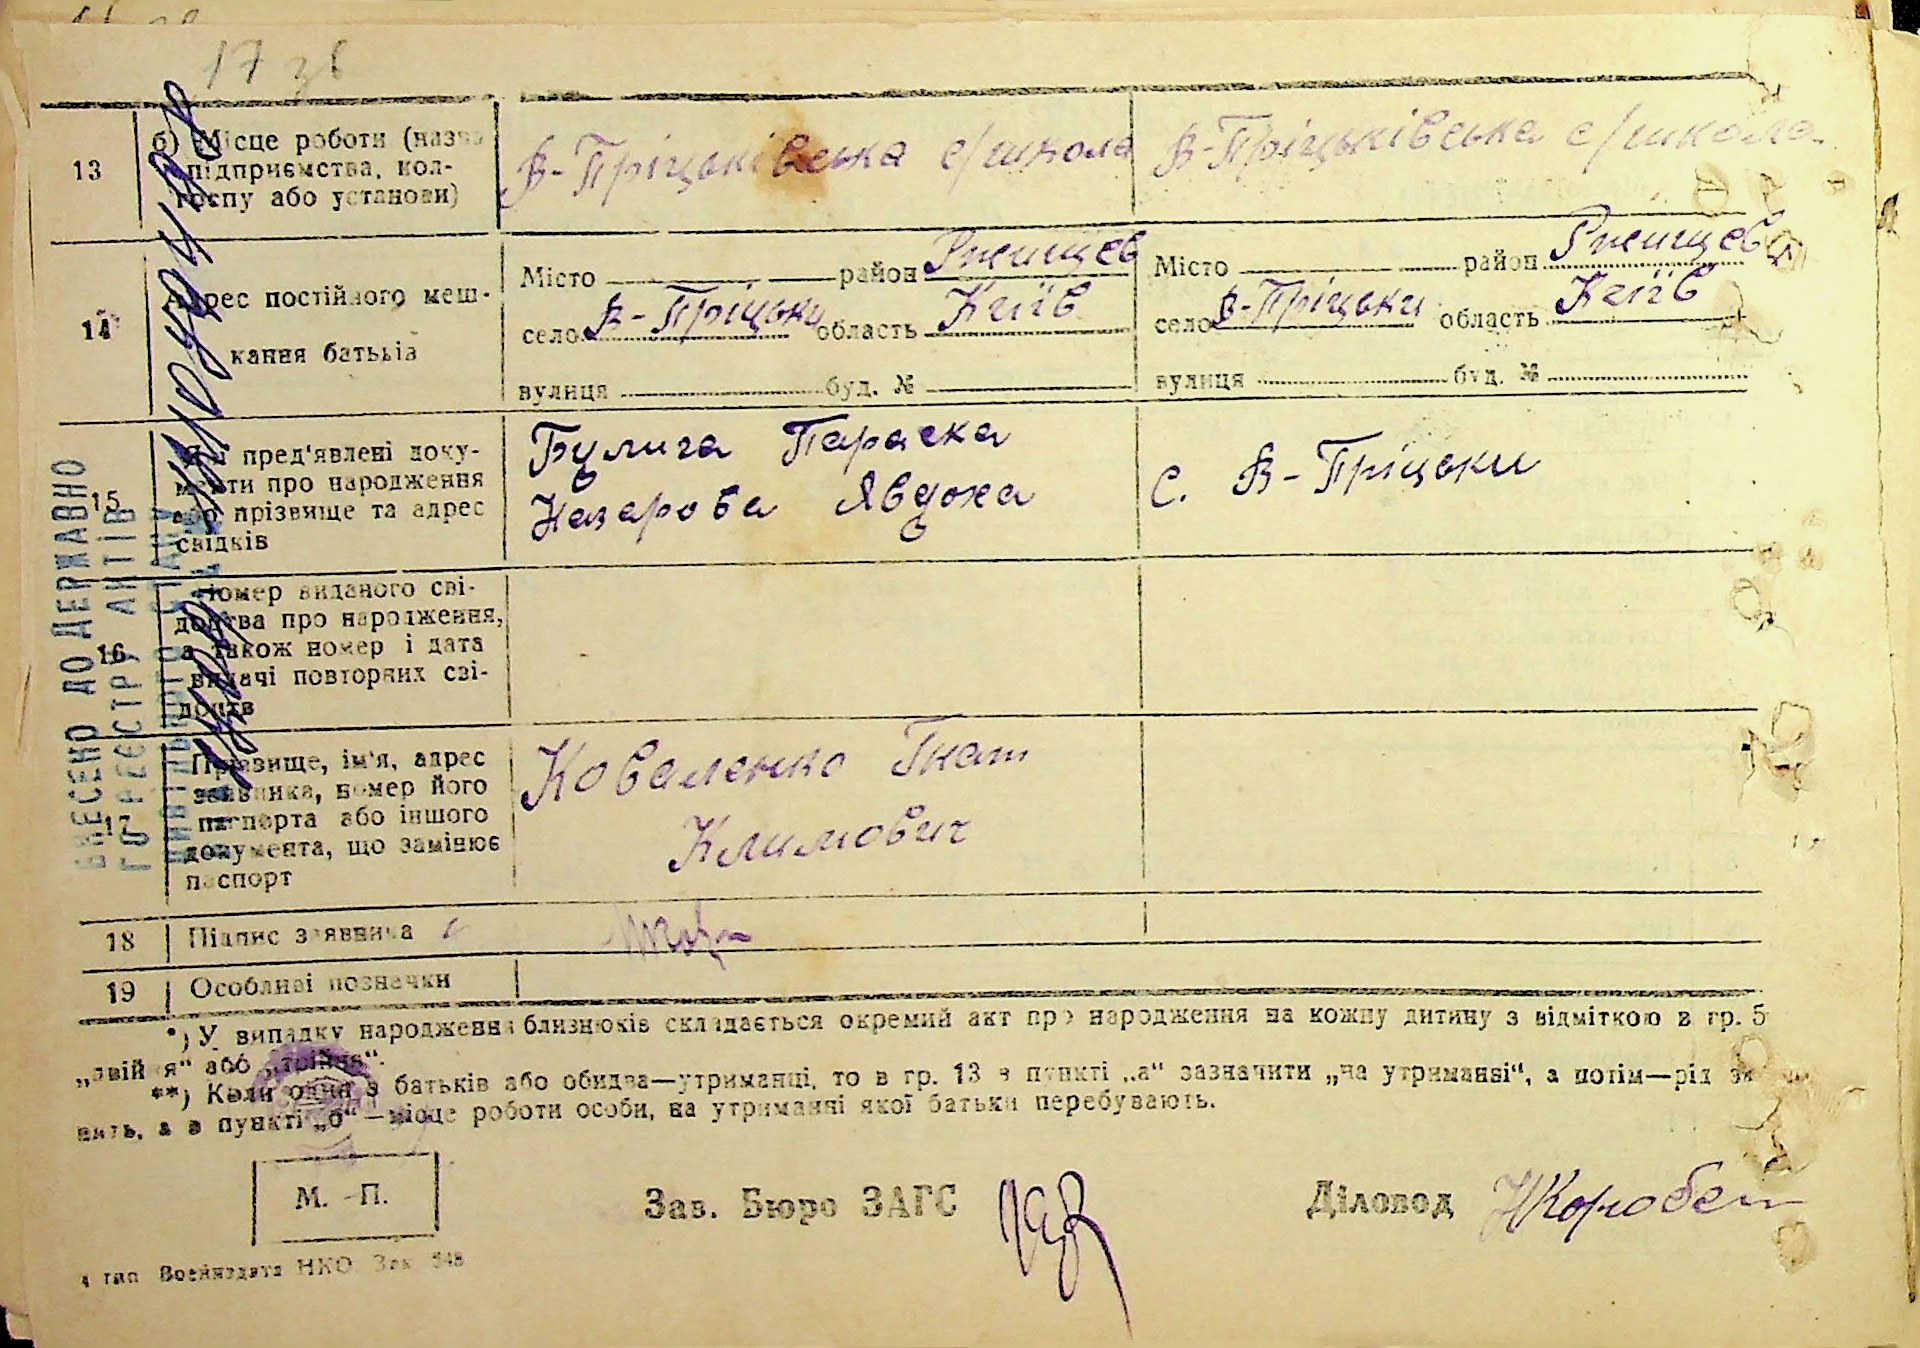 17 зв
13
б) Місце роботи (назва
підприємства, кол-
госпу або установи)
В-Пріцьківська с/школа
В-Пріцьківська с/школа
14
Адрес постійного меш-
кання батьків
Місто район Ржищев
село В-Пріцьки область Київ
вулиця буд. №
Місто район Ржищев
село В-Пріцьки область Київ
вулиця буд. №
15
Які пред'явлені доку-
менти про народження
або прізвище та адрес
свідків
Булига Параска
Назарова Явдоха
с. В-Пріцьки
16
Номер виданого сві-
доцтва про народження,
а також номер і дата
видачі повторних сві-
доцтв
17
Прізвище, ім'я, адрес
заявника, номер його
паспорта або іншого
документа, що замінює
паспорт
Коваленко Гнат
Климович
18
Підпис заявника
19
Особливі позначки
*) У випадку народження близнюків складається окремий акт про народження на кожну дитину з відміткою в гр. 5
„двійня“ або „трійня“.
**) Коли один з батьків або обидва—утриманці, то в гр. 13 в пункті „а“ зазначити „на утриманні“, а потім—рід
нять, а в пункті „б“—місце роботи особи, на утриманні якої батьки перебувають.
М. П.
Зав. Бюро ЗАГС
Діловод
4 тип Воениздата НКО Зак 548
ВНЕСЕНО ДО ДЕРЖАВНО
ГО РЕЄСТРУ АКТІВ
ЦИВІЛЬНОГО СТАНУ